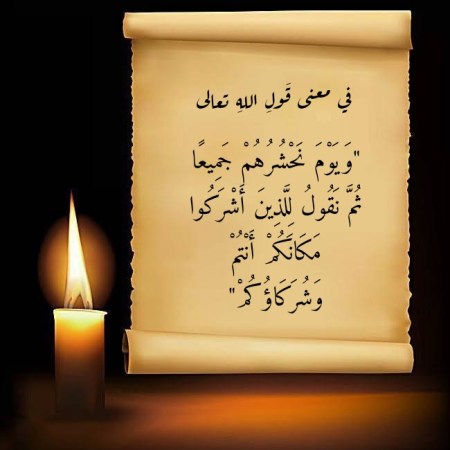 في معنى قَولِ اللهِ تعالى
"وَيَوْمَ نَحْشُرُهُمْ جَمِيعًا
ثُمَّ نَقُولُ لِلَّذِينَ أَشْرَكُوا
مَكَانَكُمْ أَنْتُمْ
وَشُرَكَاؤُكُمْ"